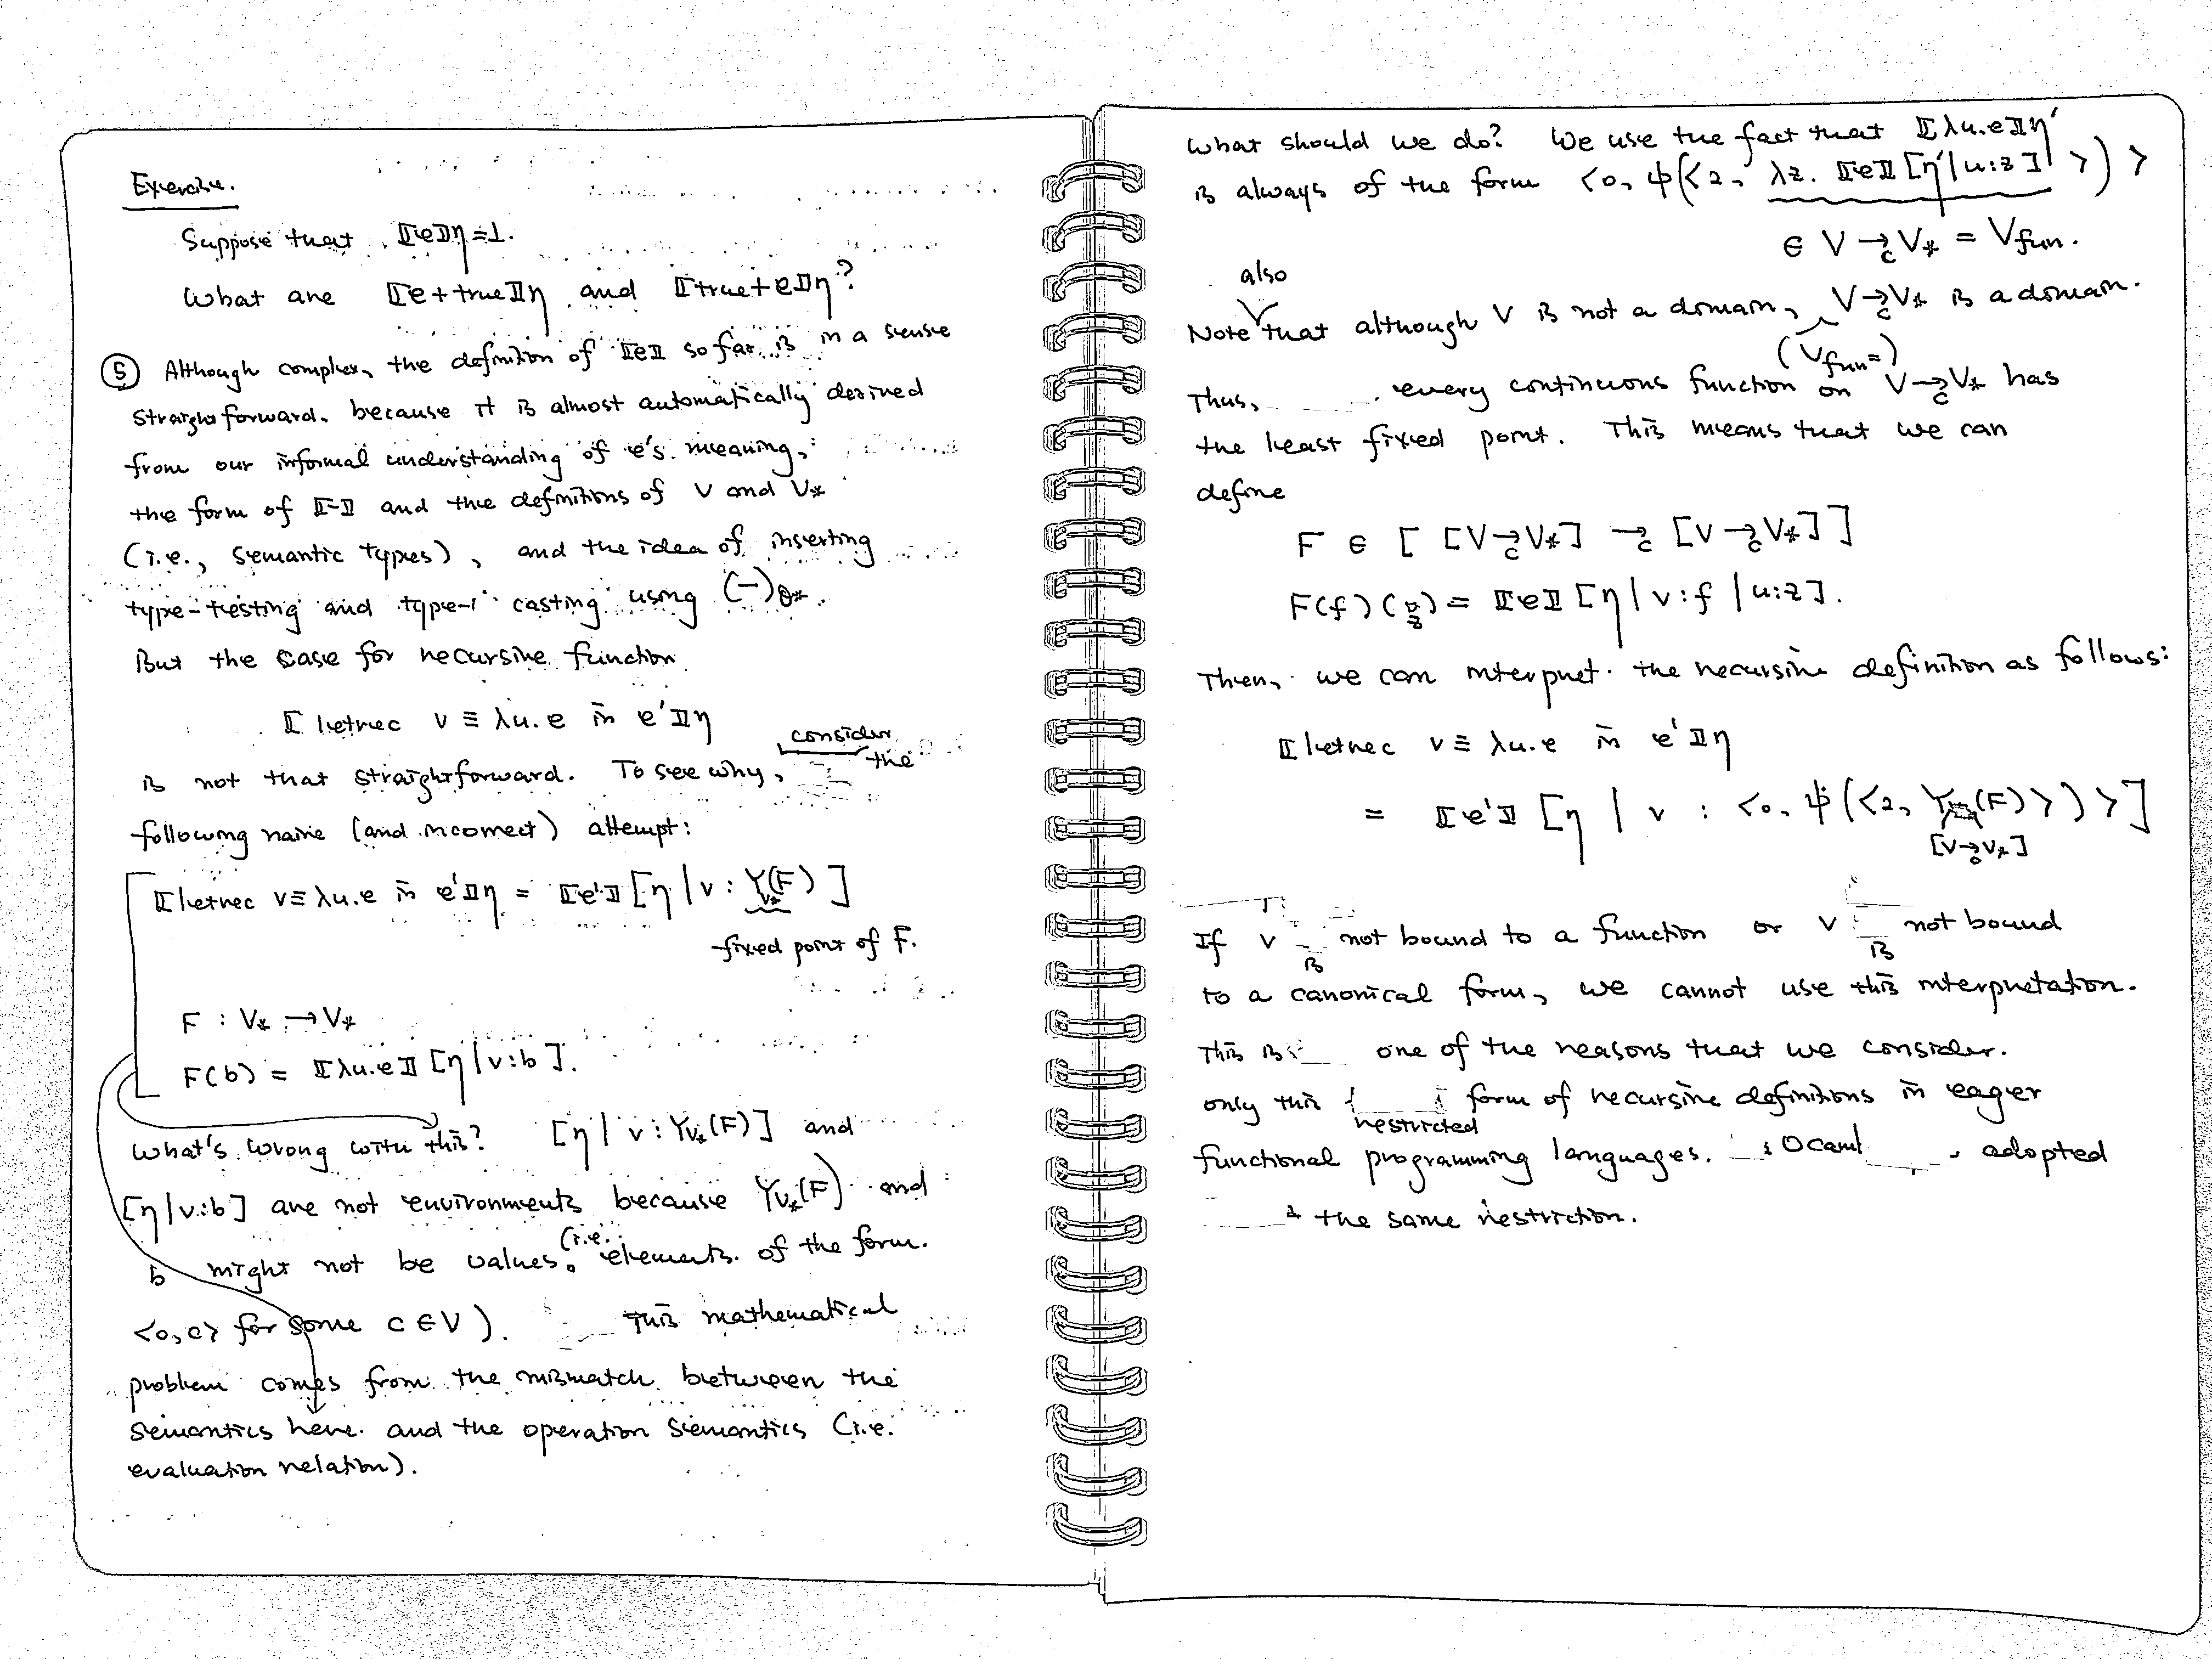 Exercise.
Suppose that ⟦e⟧η=⊥.
What are ⟦e+true⟧η and ⟦true+e⟧η?
⑤ Although complex, the definition of ⟦e⟧ so far is in a sense
straightforward. because it is almost automatically derived
from our informal understanding of e's meaning,
the form of ⟦-⟧ and the definitions of V and V*
(i.e., semantic types), and the idea of inserting
type-testing and type-casting using (-)θ*.
But the case for recursive function
⟦letrec v ≡ λu.e in e'⟧η
is not that straightforward. To see why, consider the
following naive (and incorrect) attempt:
⟦letrec v ≡ λu.e in e'⟧η = ⟦e'⟧[η | v : Y_V*(F)]
fixed point of F.
F : V* → V*
F(b) = ⟦λu.e⟧[η|v:b].
What's wrong with this? [η | v : Y_V*(F)] and
[η|v:b] are not environments because Y_V*(F) and
b might not be values. (i.e. elements of the form
<0,c> for some c ∈ V). This mathematical
problem comes from the mismatch between the
semantics here and the operation semantics (i.e.
evaluation relation).
What should we do? We use the fact that ⟦λu.e⟧η'
is always of the form <0, ψ(<2, λz. ⟦e⟧[η'|u:z]>)>
∈ V →c V* = Vfun.
also
Note that although V is not a domain, V →c V* is a domain.
(Vfun=)
Thus, every continuous function on V →c V* has
the least fixed point. This means that we can
define
F ∈ [ [V →c V*] →c [V →c V*] ]
F(f)(z) = ⟦e⟧[η | v:f | u:z].
Then, we can interpret the recursive definition as follows:
⟦letrec v ≡ λu.e in e'⟧η
= ⟦e'⟧[η | v : <0, ψ(<2, Y_[V →c V*](F)>)>]
If v is not bound to a function or v is not bound
to a canonical form, we cannot use this interpretation.
This is one of the reasons that we consider
only this restricted form of recursive definitions in eager
functional programming languages. Ocaml adopted
the same restriction.